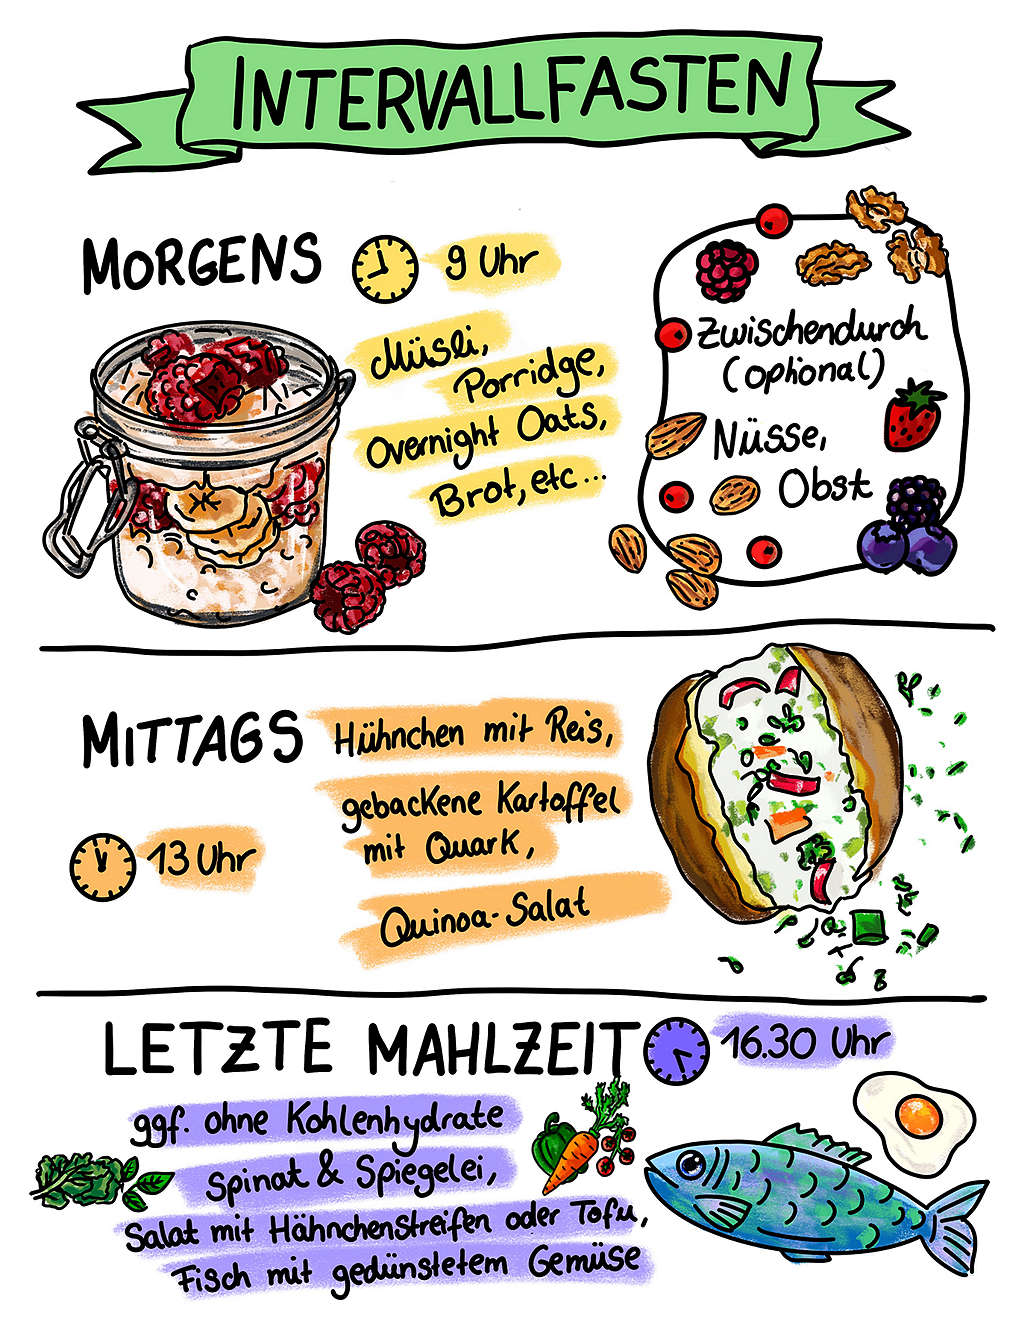 INTERVALLFASTEN
MORGENS
9 Uhr
Müsli,
Porridge,
Overnight Oats,
Brot, etc...
Zwischendurch
(optional)
Nüsse,
Obst
MITTAGS
13 Uhr
Hühnchen mit Reis,
gebackene Kartoffel
mit Quark,
Quinoa-Salat
LETZTE MAHLZEIT
16.30 Uhr
ggf. ohne Kohlenhydrate
Spinat & Spiegelei,
Salat mit Hähnchenstreifen oder Tofu,
Fisch mit gedünstetem Gemüse